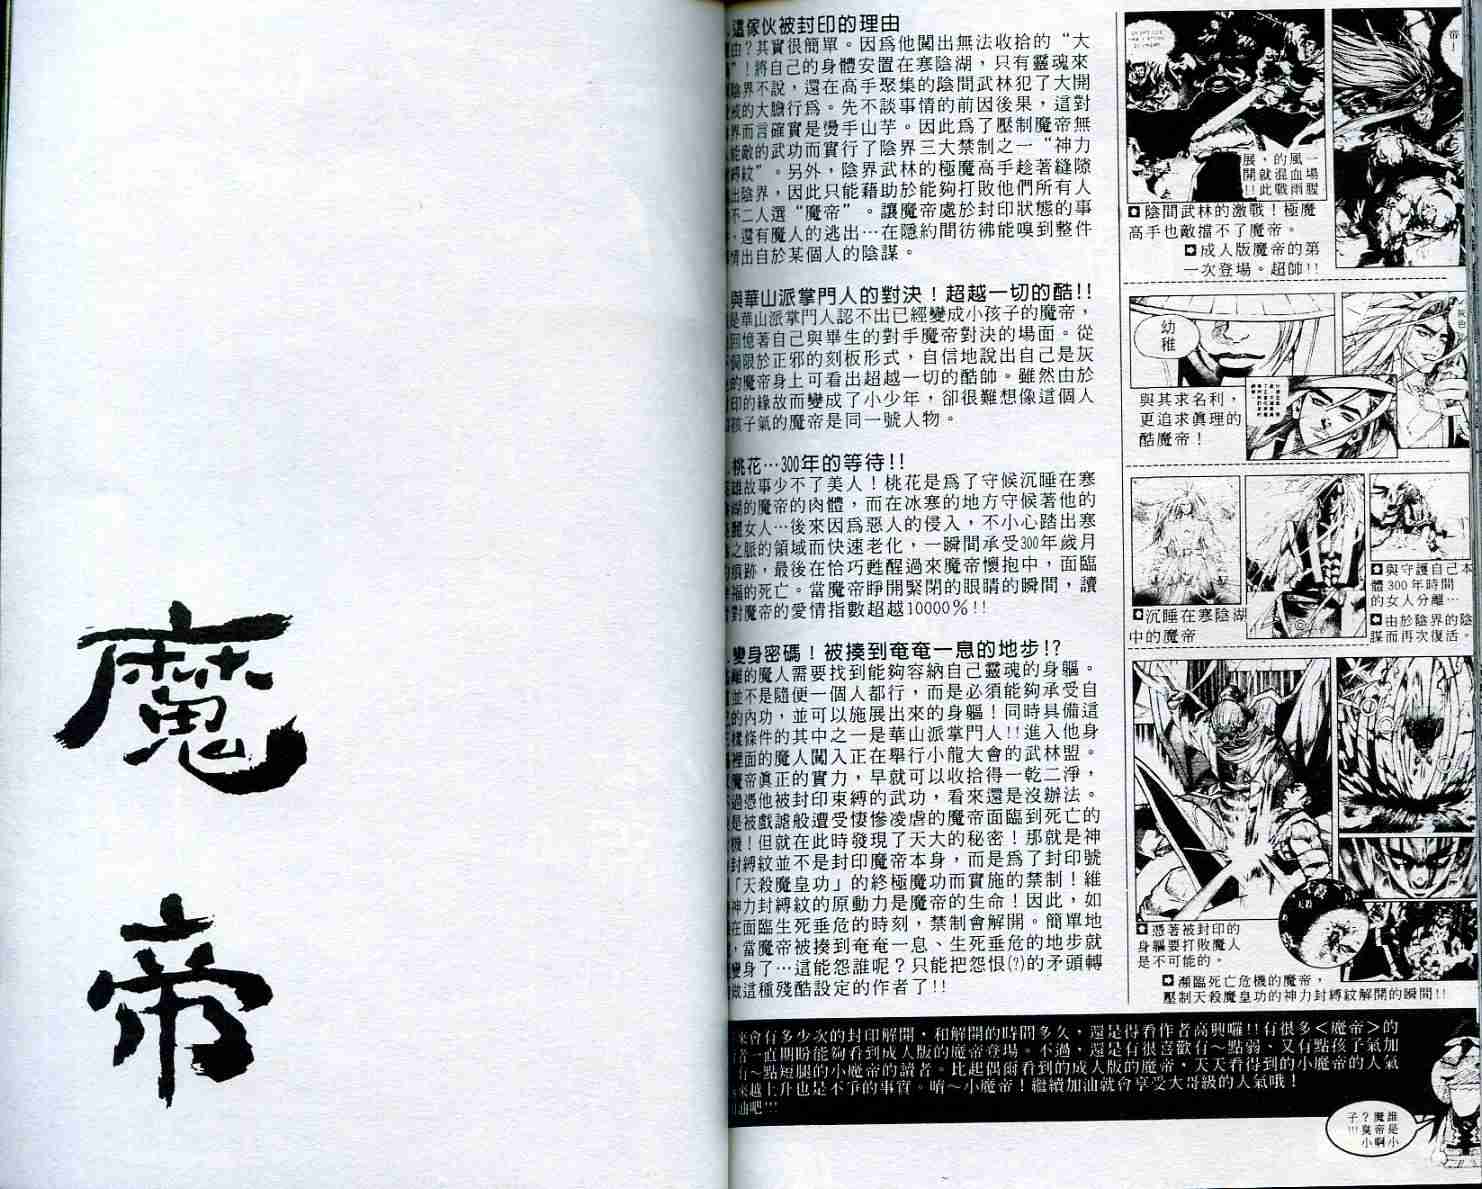 魔
帝
這傢伙被封印的理由
由?其實很簡單。因為他闖出無法收拾的“大
”!將自己的身體安置在寒陰湖,只有靈魂來
陰界不說,還在高手聚集的陰間武林犯了大開
戒的大膽行為。先不談事情的前因後果,這對
界而言確實是燙手山芋。因此為了壓制魔帝無
能敵的武功而實行了陰界三大禁制之一“神力
縛紋”。另外,陰界武林的極魔高手趁著縫隙
出陰界,因此只能藉助於能夠打敗他們所有人
不二人選“魔帝”。讓魔帝處於封印狀態的事
,還有魔人的逃出…在隱約間彷彿能嗅到整件
情出自於某個人的陰謀。
與華山派掌門人的對決!超越一切的酷!!
是華山派掌門人認不出已經變成小孩子的魔帝,
回憶著自己與畢生的對手魔帝對決的場面。從
侷限於正邪的刻板形式,自信地說出自己是灰
的魔帝身上可看出超越一切的酷帥。雖然由於
印的緣故而變成了小少年,卻很難想像這個人
孩子氣的魔帝是同一號人物。
桃花…300年的等待!!
雄故事少不了美人!桃花是為了守候沉睡在寒
湖的魔帝的肉體,而在冰寒的地方守候著他的
麗女人…後來因為惡人的侵入,不小心踏出寒
之脈的領域而快速老化,一瞬間承受300年歲月
痕跡,最後在恰巧甦醒過來魔帝懷抱中,面臨
福的死亡。當魔帝睜開緊閉的眼睛的瞬間,讀
對魔帝的愛情指數超越10000%!!
變身密碼!被揍到奄奄一息的地步!?
離的魔人需要找到能夠容納自己靈魂的身軀。
並不是隨便一個人都行,而是必須能夠承受自
的內功,並可以施展出來的身軀!同時具備這
樣條件的其中之一是華山派掌門人!!進入他身
裡面的魔人闖入正在舉行小龍大會的武林盟。
魔帝真正的實力,早就可以收拾得一乾二淨,
過憑他被封印束縛的武功,看來還是沒辦法。
是被戲謔般遭受悽慘凌虐的魔帝面臨到死亡的
機!但就在此時發現了天大的秘密!那就是神
封縛紋並不是封印魔帝本身,而是為了封印號
「天殺魔皇功」的終極魔功而實施的禁制!維
神力封縛紋的原動力是魔帝的生命!因此,如
在面臨生死垂危的時刻,禁制會解開。簡單地
,當魔帝被揍到奄奄一息、生死垂危的地步就
變身了…這能怨誰呢?只能把怨恨(?)的矛頭轉
做這種殘酷設定的作者了!!
帝!
一場腥
風血雨
的混戰
,就此
展開!!
陰間武林的激戰!極魔
高手也敵擋不了魔帝。
成人版魔帝的第
一次登場。超帥!!
幼
稚
與其求名利,
更追求真理的
酷魔帝!
沉睡在寒陰湖
中的魔帝
與守護自己本
體300年時間
的女人分離…
由於陰界的陰
謀而再次復活。
憑著被封印的
身軀要打敗魔人
是不可能的。
瀕臨死亡危機的魔帝,
壓制天殺魔皇功的神力封縛紋解開的瞬間!!
來會有多少次的封印解開,和解開的時間多久,還是得看作者高興囉!!有很多<魔帝>的
者一直期盼能夠看到成人版的魔帝登場。不過,還是有很喜歡有~點弱、又有點孩子氣加
有~點短腿的小魔帝的讀者。比起偶爾看到的成人版的魔帝,天天看得到的小魔帝的人氣
來越上升也是不爭的事實。唷~小魔帝!繼續加油就會享受大哥級的人氣哦!
油吧!!!
誰是小
魔帝啊
?臭小
子!!!